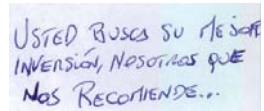 USTED BUSCA SU MEJOR
INVERSIÓN, NOSOTROS QUE
NOS RECOMIENDE...